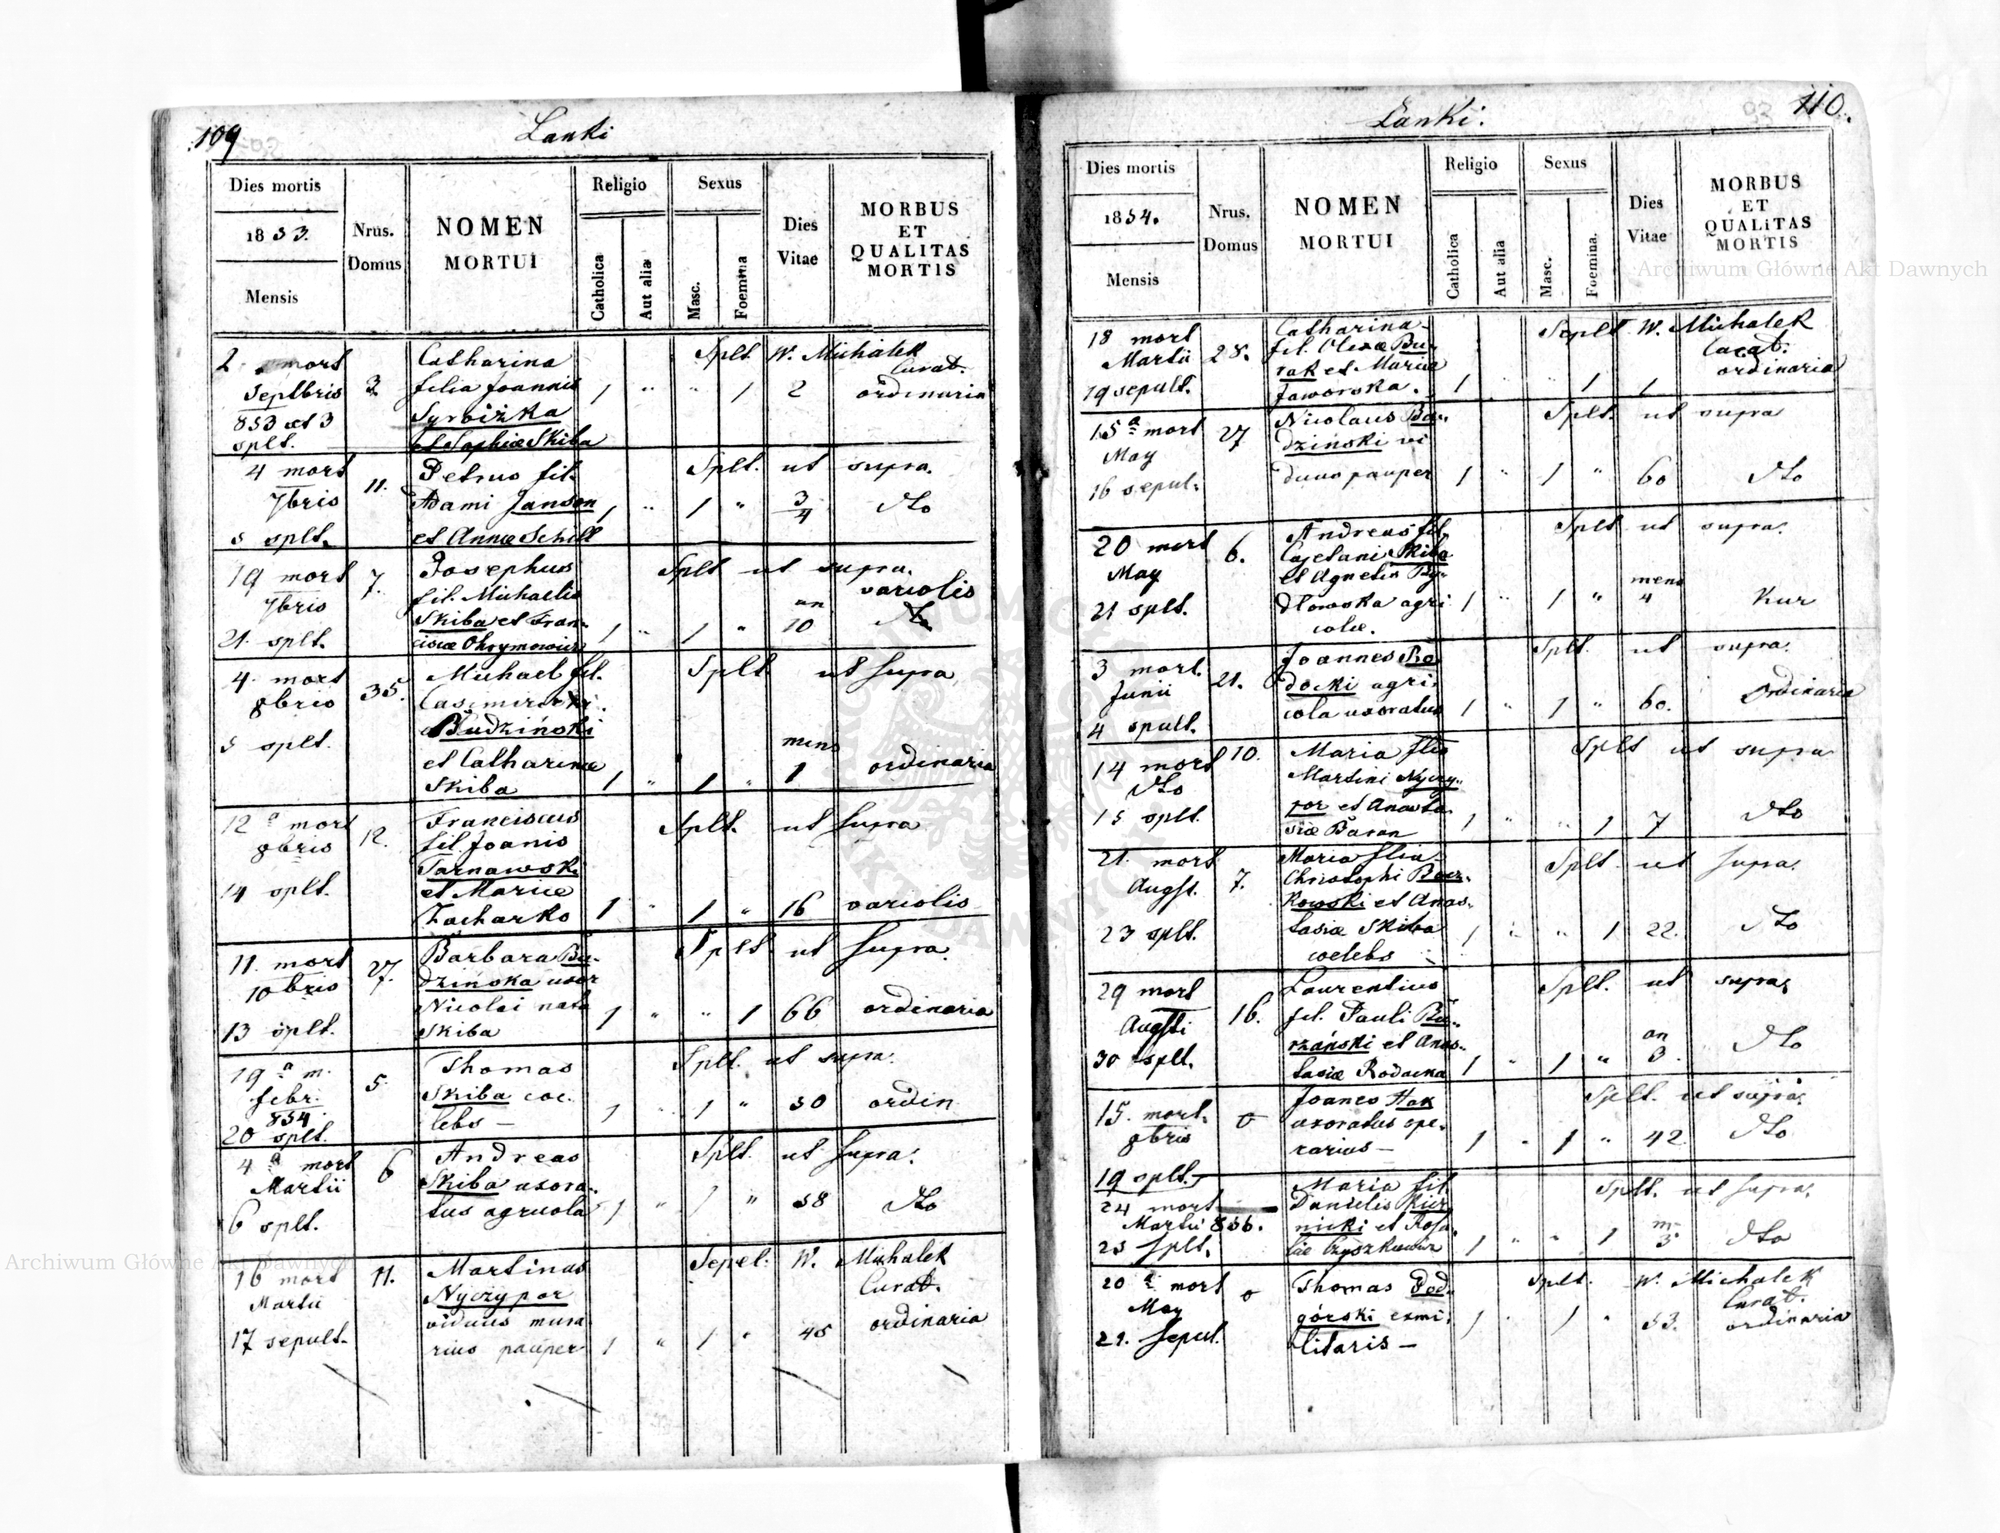 109
Lanki
Dies mortis
1853.
Mensis
Nrus.
Domus
NOMEN
MORTUI
Religio
Catholica
Aut alia
Sexus
Masc.
Foemina
Dies
Vitae
MORBUS
ET
QUALITAS
MORTIS
2 mort
Septbris
853 et 3
splt.
3
Catharina
filia Joannis
et Sophiæ Skiba
1 " " 1 2
Splt W. Michalek
Curat.
ordinaria
4 mort
7bris
5 splt.
11.
Petrus fil.
Adami Janson
et Annæ Schill
1 " 1 " 3/4
Splt. ut supra.
dto
19 mort
7bris
21. splt.
7.
Josephus
fil. Michaelis
Skiba et Fran-
ciscæ Ohrymowicz
1 " 1 " an 10
Splt ut supra.
variolis
4. mort
8bris
5 splt.
35.
Michael fil.
Casimiri
Budziński
et Catharinæ
Skiba
1 " 1 " mens 1
Splt ut supra
ordinaria
12 a mort
8bris
14 splt.
12.
Franciscus
fil. Joanis
Tarnawski
et Mariæ
Zacharko
1 " 1 " 16
Splt. ut supra
variolis
11. mort
10bris
13 splt.
27.
Barbara Bu-
dzińska uxor
Nicolai nata
Skiba
1 " " 1 66
Splt ut supra.
ordinaria
19 a m.
febr.
854
20 splt.
5.
Thomas
Skiba coe-
lebs —
1 " 1 " 50
Splt. ut supra.
ordin
4 a mort
Martii
6 splt.
6
Andreas
Skiba uxora-
tus agricola
1 " 1 " 58
Splt. ut supra.
dto
16 mort
Martii
17 sepult.
11.
Martinus
Nyczypor
viduus mura
rius pauper
1 " 1 " 45
Sepel. W. Michalek
Curat.
ordinaria
110.
Lanki.
Dies mortis
1854.
Mensis
Nrus.
Domus
NOMEN
MORTUI
Religio
Catholica
Aut alia
Sexus
Masc.
Foemina.
Dies
Vitae
MORBUS
ET
QUALITAS
MORTIS
18 mort
Martii
19 sepult.
28.
Catharina
fil. Olexæ Bu-
rak et Maria
Jaworska.
1 1 1
Seplt W. Michalek
Curat.
ordinaria
15 a mort
May
16 sepul.
27
Nicolaus Bu-
dziński vi
duus pauper
1 " 1 " 60
Splt. ut supra
dto
20 mort
May
21 splt.
6.
Andreas fil.
Cajetani Skiba
et Agnetis By-
dłowska agri
colæ.
1 " 1 " mens 4
Splt ut supra.
Kur
3 mort.
Junii
4 spult.
21.
Joannes Ro
docki agri-
cola uxoratus
1 " 1 " 60.
Splt. ut supra.
Ordinaria
14 mort
dto
15 splt.
10.
Maria flia
Martini Nyczy-
por et Anasta
siæ Baran
1 " " 1 7
Splt ut supra
dto
21. mort
Augst.
23 splt.
7.
Maria flia
Christophi
kowski et Anas-
tasiæ Skiba
coelebs
1 " " 1 22.
Splt ut supra.
dto
29 mort
Augsti
30 splt.
16.
Laurentius
fil. Pauli Bu-
rzański et Anas-
tasiæ Rodacka
1 " 1 " an 3.
Splt. ut supra.
dto
15. mort.
8bris
19 splt.
0
Joanes Hak
uxoratus ope-
rarius —
1 " 1 " 42
Splt. ut supra.
dto
24 mort
Martii 856.
25 splt.
Maria fil.
Danielis
nicki et Rosa-
liæ Czyszkiewicz
1 " " 1 m 3
Splt. ut supra.
dto
20 a mort
May
21. sepul.
0
Thomas Pod-
górski exmi-
litaris —
1 " 1 " 53.
Splt. W. Michalek
Curat.
ordinaria
Archiwum Główne Akt Dawnych
Archiwum Główne Akt Dawnych
ARCHIWUM GŁÓWNE AKT DAWNYCH